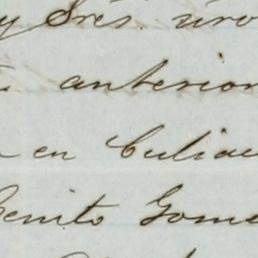 y Sres. uro
anterior
en Culiac
Benito Gome